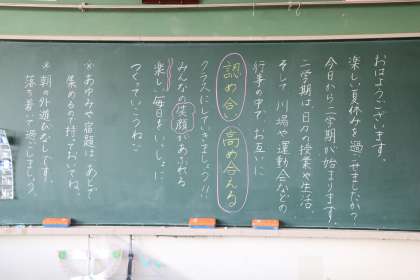 おはようございます。
楽しい夏休みを過ごせましたか?
今日から二学期が始まります。
二学期は、日々の授業や生活、
そして川場や運動会などの
行事の中で、お互いに
認め合い 高め合える
クラスにしていきましょう!!
みんなの笑顔があふれる
楽しい毎日を、いっしょに
つくっていこうね♡
※あゆみや宿題は、あとで
集めるので持っておいてね。
※朝の外遊びなしです。
落ち着いて過ごしましょう。